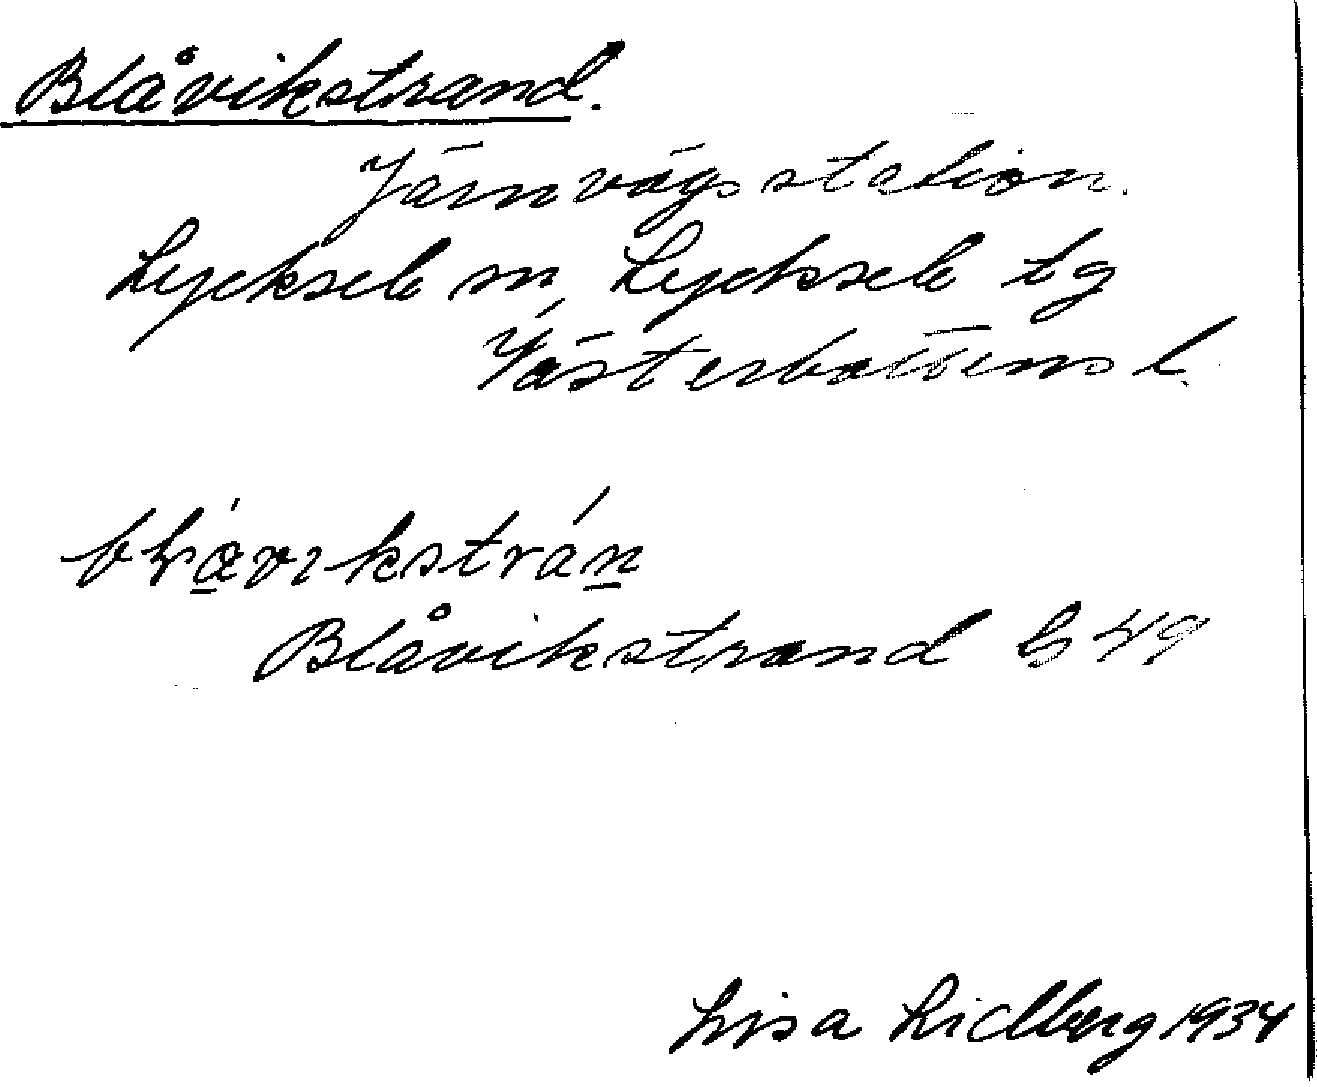 Blåvikstrand.
Järnvägsstation.
Lycksele sn, Lycksele tg
Västerbottens l.
Blåvikstrand G 49
Lisa Lidberg 1934